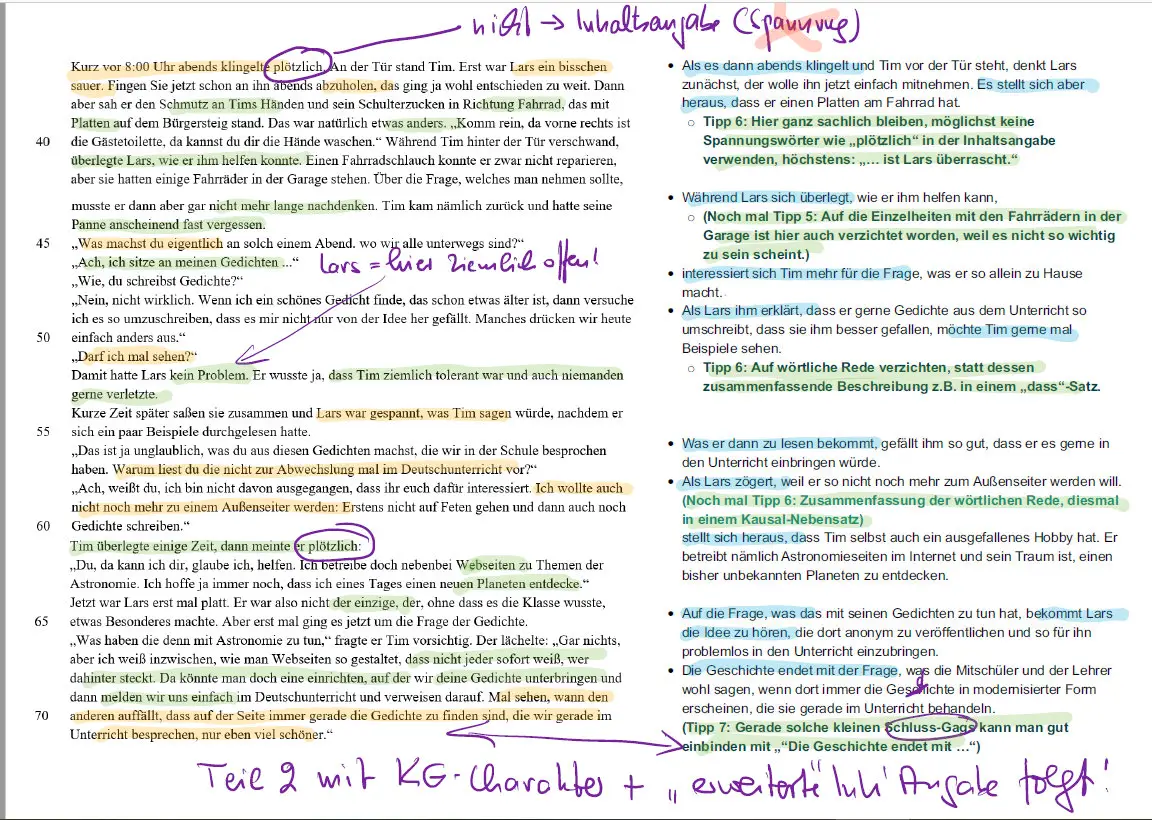 nicht → Inhaltsangabe (Spannung)
Kurz vor 8:00 Uhr abends klingelte plötzlich. An der Tür stand Tim. Erst war Lars ein bisschen
sauer. Fingen Sie jetzt schon an ihn abends abzuholen, das ging ja wohl entschieden zu weit. Dann
aber sah er den Schmutz an Tims Händen und sein Schulterzucken in Richtung Fahrrad, das mit
Platten auf dem Bürgersteig stand. Das war natürlich etwas anders. „Komm rein, da vorne rechts ist
40 die Gästetoilette, da kannst du dir die Hände waschen.“ Während Tim hinter der Tür verschwand,
überlegte Lars, wie er ihm helfen konnte. Einen Fahrradschlauch konnte er zwar nicht reparieren,
aber sie hatten einige Fahrräder in der Garage stehen. Über die Frage, welches man nehmen sollte,
musste er dann aber gar nicht mehr lange nachdenken. Tim kam nämlich zurück und hatte seine
Panne anscheinend fast vergessen.
45 „Was machst du eigentlich an solch einem Abend. wo wir alle unterwegs sind?“
„Ach, ich sitze an meinen Gedichten ...“
Lars = hier ziemlich offen!
„Wie, du schreibst Gedichte?“
„Nein, nicht wirklich. Wenn ich ein schönes Gedicht finde, das schon etwas älter ist, dann versuche
ich es so umzuschreiben, dass es mir nicht nur von der Idee her gefällt. Manches drücken wir heute
50 einfach anders aus.“
„Darf ich mal sehen?“
Damit hatte Lars kein Problem. Er wusste ja, dass Tim ziemlich tolerant war und auch niemanden
gerne verletzte.
Kurze Zeit später saßen sie zusammen und Lars war gespannt, was Tim sagen würde, nachdem er
55 sich ein paar Beispiele durchgelesen hatte.
„Das ist ja unglaublich, was du aus diesen Gedichten machst, die wir in der Schule besprochen
haben. Warum liest du die nicht zur Abwechslung mal im Deutschunterricht vor?“
„Ach, weißt du, ich bin nicht davon ausgegangen, dass ihr euch dafür interessiert. Ich wollte auch
nicht noch mehr zu einem Außenseiter werden: Erstens nicht auf Feten gehen und dann auch noch
60 Gedichte schreiben.“
Tim überlegte einige Zeit, dann meinte er plötzlich:
„Du, da kann ich dir, glaube ich, helfen. Ich betreibe doch nebenbei Webseiten zu Themen der
Astronomie. Ich hoffe ja immer noch, dass ich eines Tages einen neuen Planeten entdecke.“
Jetzt war Lars erst mal platt. Er war also nicht der einzige, der, ohne dass es die Klasse wusste,
65 etwas Besonderes machte. Aber erst mal ging es jetzt um die Frage der Gedichte.
„Was haben die denn mit Astronomie zu tun,“ fragte er Tim vorsichtig. Der lächelte: „Gar nichts,
aber ich weiß inzwischen, wie man Webseiten so gestaltet, dass nicht jeder sofort weiß, wer
dahinter steckt. Da könnte man doch eine einrichten, auf der wir deine Gedichte unterbringen und
dann melden wir uns einfach im Deutschunterricht und verweisen darauf. Mal sehen, wann den
70 anderen auffällt, dass auf der Seite immer gerade die Gedichte zu finden sind, die wir gerade im
Unterricht besprechen, nur eben viel schöner.“
• Als es dann abends klingelt und Tim vor der Tür steht, denkt Lars
zunächst, der wolle ihn jetzt einfach mitnehmen. Es stellt sich aber
heraus, dass er einen Platten am Fahrrad hat.
○ Tipp 6: Hier ganz sachlich bleiben, möglichst keine
Spannungswörter wie „plötzlich“ in der Inhaltsangabe
verwenden, höchstens: „... ist Lars überrascht.“
• Während Lars sich überlegt, wie er ihm helfen kann,
○ (Noch mal Tipp 5: Auf die Einzelheiten mit den Fahrrädern in der
Garage ist hier auch verzichtet worden, weil es nicht so wichtig
zu sein scheint.)
• interessiert sich Tim mehr für die Frage, was er so allein zu Hause
macht.
• Als Lars ihm erklärt, dass er gerne Gedichte aus dem Unterricht so
umschreibt, dass sie ihm besser gefallen, möchte Tim gerne mal
Beispiele sehen.
○ Tipp 6: Auf wörtliche Rede verzichten, statt dessen
zusammenfassende Beschreibung z.B. in einem „dass“-Satz.
• Was er dann zu lesen bekommt, gefällt ihm so gut, dass er es gerne in
den Unterricht einbringen würde.
• Als Lars zögert, weil er so nicht noch mehr zum Außenseiter werden will.
(Noch mal Tipp 6: Zusammenfassung der wörtlichen Rede, diesmal
in einem Kausal-Nebensatz)
stellt sich heraus, dass Tim selbst auch ein ausgefallenes Hobby hat. Er
betreibt nämlich Astronomieseiten im Internet und sein Traum ist, einen
bisher unbekannten Planeten zu entdecken.
• Auf die Frage, was das mit seinen Gedichten zu tun hat, bekommt Lars
die Idee zu hören, die dort anonym zu veröffentlichen und so für ihn
problemlos in den Unterricht einzubringen.
• Die Geschichte endet mit der Frage, was die Mitschüler und der Lehrer
wohl sagen, wenn dort immer die Geschichte in modernisierter Form
erscheinen, die sie gerade im Unterricht behandeln.
(Tipp 7: Gerade solche kleinen Schluss-Gags kann man gut
einbinden mit „“Die Geschichte endet mit ...“)
Teil 2 mit KG-Charakter + „erweiterte“ Inh' Angabe folgt!